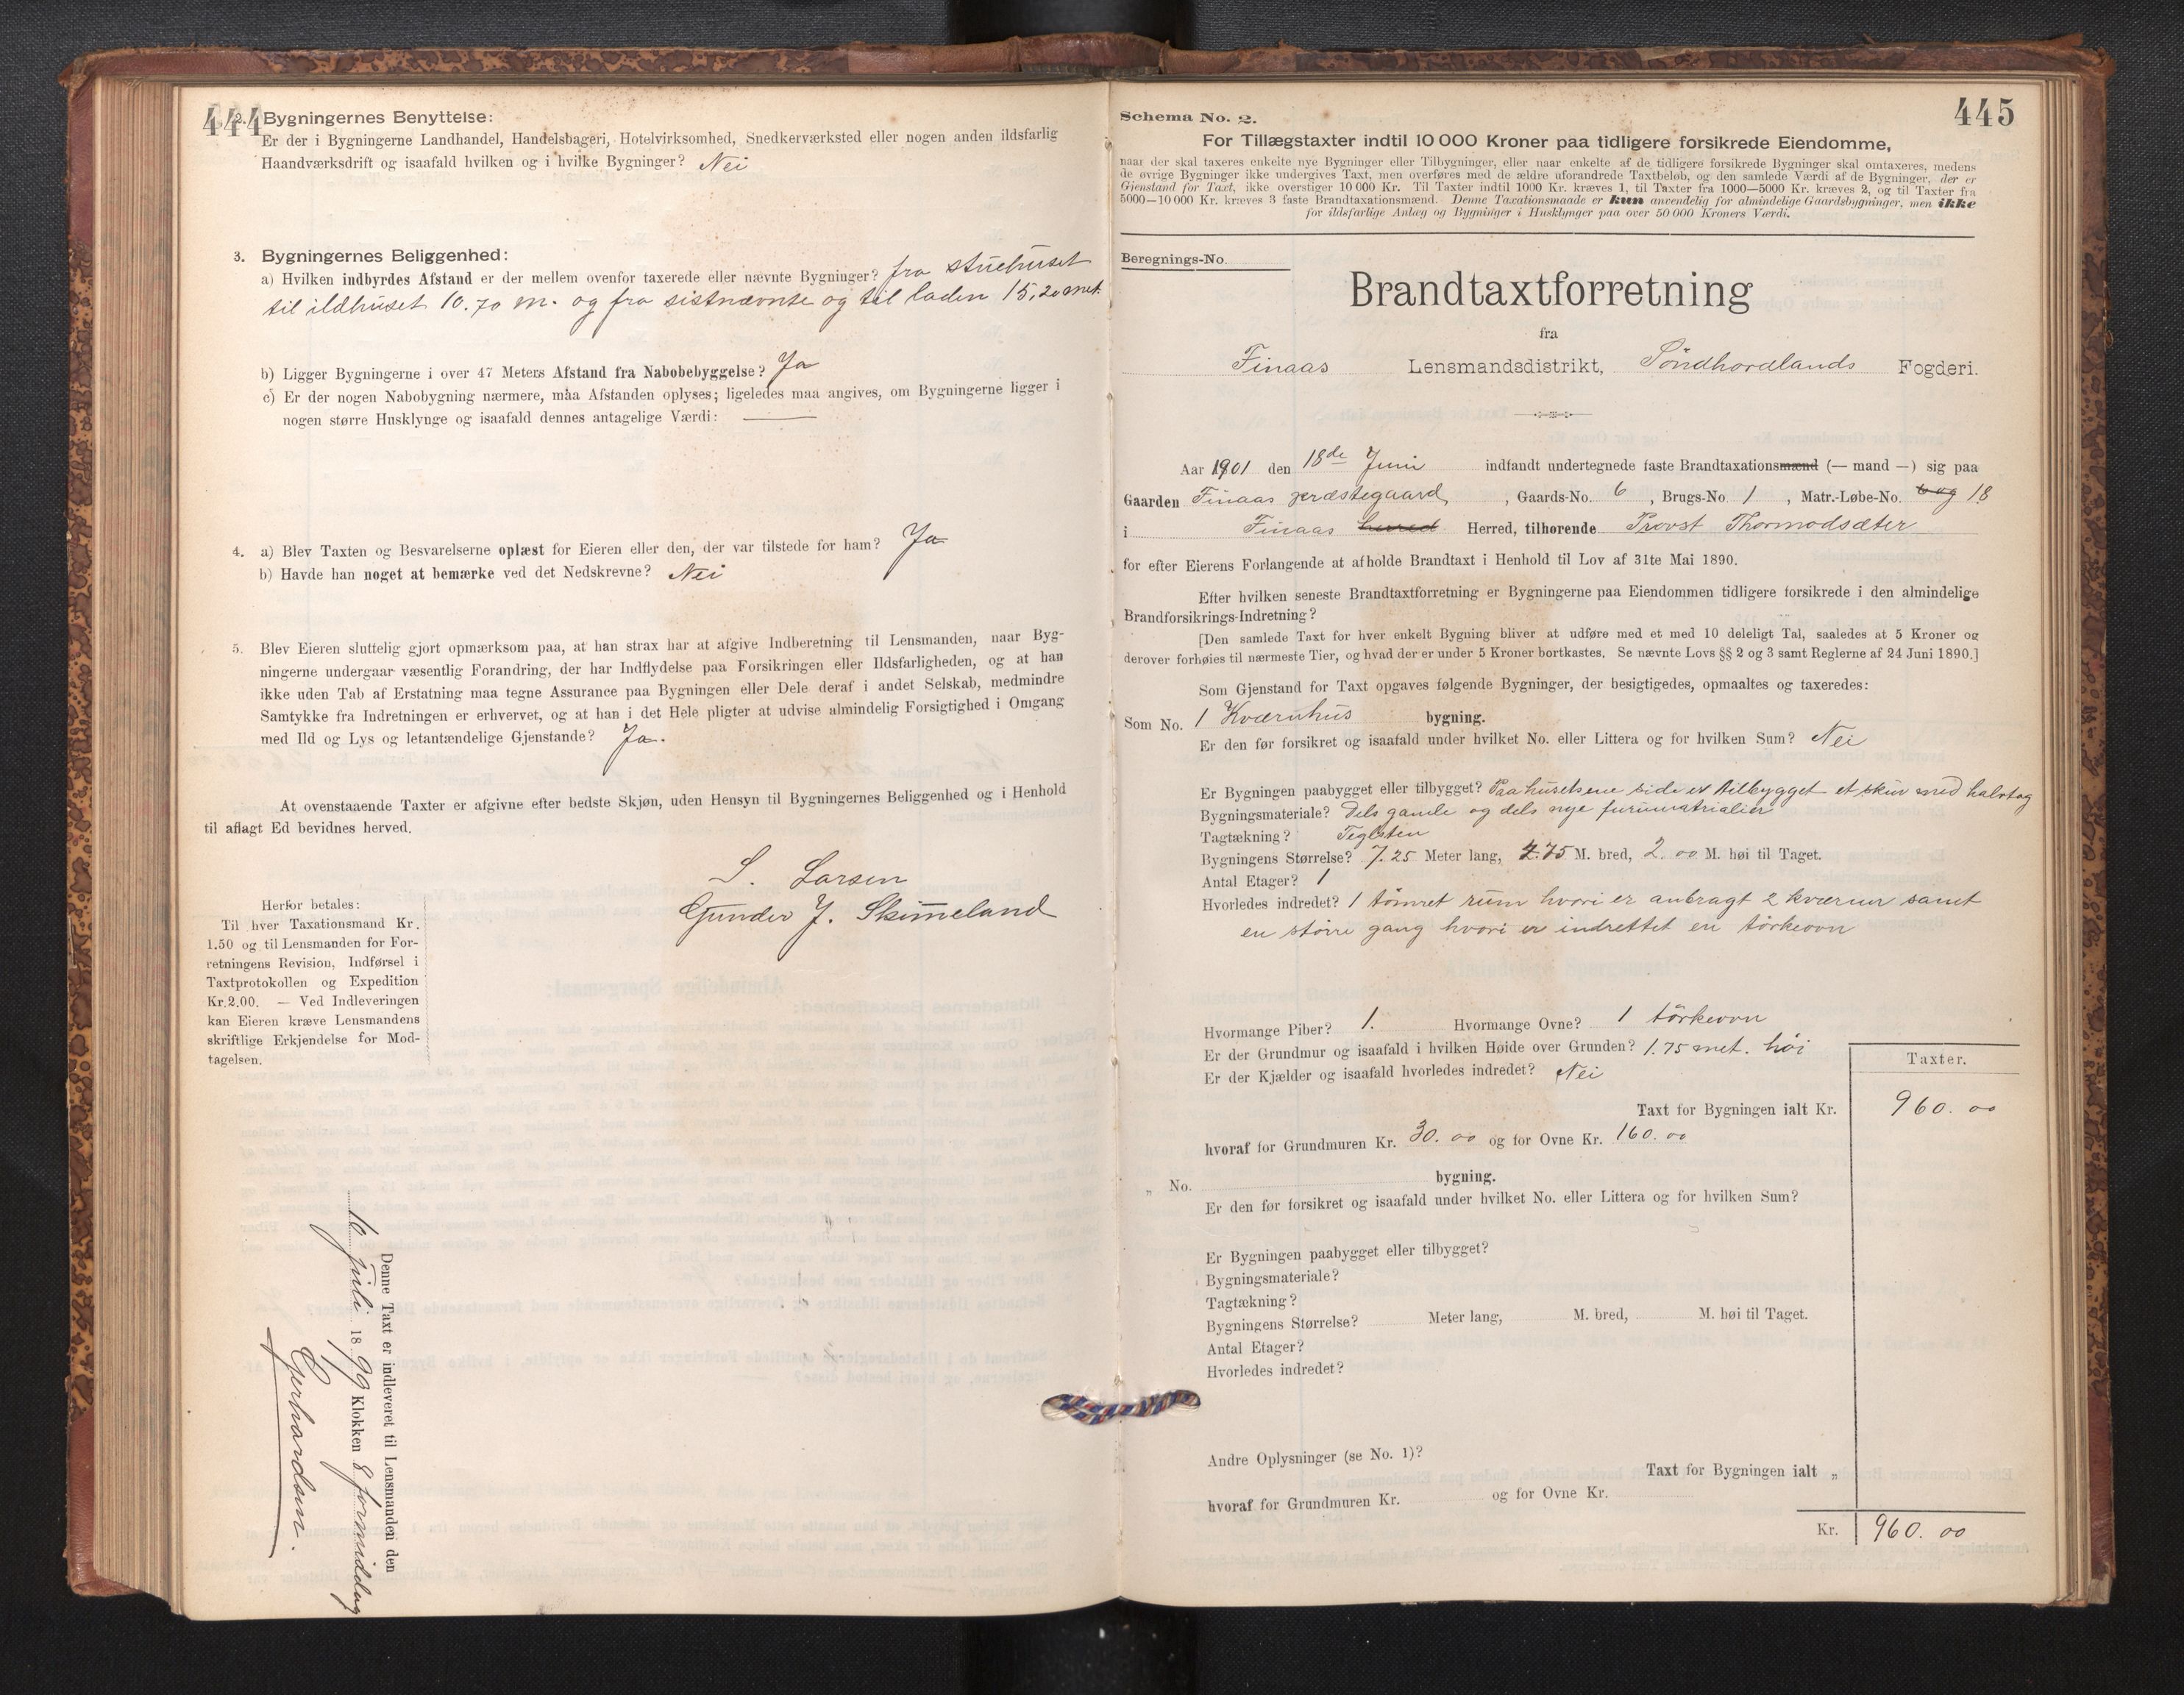 444
2. Bygningernes Benyttelse:
Er der i Bygningerne Landhandel, Handelsbageri, Hotelvirksomhed, Snedkerværksted eller nogen anden ildsfarlig
Haandværksdrift og isaafald hvilken og i hvilke Bygninger? Nei
3. Bygningernes Beliggenhed:
a) Hvilken indbyrdes Afstand er der mellem ovenfor taxerede eller nævnte Bygninger? fra stuehuset
til ildhuset 10.70 m. og fra sistnævnte og til laden 15,20 met.
b) Ligger Bygningerne i over 47 Meters Afstand fra Nabobebyggelse? Ja
c) Er der nogen Nabobygning nærmere, maa Afstanden oplyses; ligeledes maa angives, om Bygningerne ligger i
nogen større Husklynge og isaafald dennes antagelige Værdi: ———
4. a) Blev Taxten og Besvarelserne oplæst for Eieren eller den, der var tilstede for ham? Ja
b) Havde han noget at bemærke ved det Nedskrevne? Nei
5. Blev Eieren sluttelig gjort opmærksom paa, at han strax har at afgive Indberetning til Lensmanden, naar Byg-
ningerne undergaar væsentlig Forandring, der har Indflydelse paa Forsikringen eller Ildsfarligheden, og at han
ikke uden Tab af Erstatning maa tegne Assurance paa Bygningen eller Dele deraf i andet Selskab, medmindre
Samtykke fra Indretningen er erhvervet, og at han i det Hele pligter at udvise almindelig Forsigtighed i Omgang
med Ild og Lys og letantændelige Gjenstande? Ja.
At ovenstaaende Taxter er afgivne efter bedste Skjøn, uden Hensyn til Bygningernes Beliggenhed og i Henhold
til aflagt Ed bevidnes herved.
S. Larsen
Gunder J. Skimeland
Herfor betales:
Til hver Taxationsmand Kr.
1.50 og til Lensmanden for For-
retningens Revision, Indførsel i
Taxtprotokollen og Expedition
Kr.2.00. — Ved Indleveringen
kan Eieren kræve Lensmandens
skriftlige Erkjendelse for Mod-
tagelsen.
Denne Taxt er indleveret til Lensmanden den
10 juli 1899 Klokken 8 formiddag
Gerhardsen.
445
Schema No. 2.
For Tillægstaxter indtil 10 000 Kroner paa tidligere forsikrede Eiendomme,
naar der skal taxeres enkelte nye Bygninger eller Tilbygninger, eller naar enkelte af de tidligere forsikrede Bygninger skal omtaxeres, medens
de øvrige Bygninger ikke undergives Taxt, men overføres med de ældre uforandrede Taxtbeløb, og den samlede Værdi af de Bygninger, der er
Gjenstand for Taxt, ikke overstiger 10 000 Kr. Til Taxter indtil 1000 Kr. kræves 1, til Taxter fra 1000—5000 Kr. kræves 2, og til Taxter fra
5000—10 000 Kr. kræves 3 faste Brandtaxationsmænd. Denne Taxationsmaade er kun anvendelig for almindelige Gaardsbygninger, men ikke
for ildsfarlige Anlæg og Bygninger i Husklynger paa over 50 000 Kroners Værdi.
Beregnings-No.
Brandtaxtforretning
fra
Finaas Lensmandsdistrikt, Söndhordlands Fogderi.
Aar 1901 den 18de Juni indfandt undertegnede faste Brandtaxationsmænd (— mand —) sig paa
Gaarden Finaas præstegaard, Gaards-No. 6, Brugs-No. 1, Matr.-Løbe-No. 6 og 18
i Finaas herred Herred, tilhørende Provst Thormodsæter
for efter Eierens Forlangende at afholde Brandtaxt i Henhold til Lov af 31te Mai 1890.
Efter hvilken seneste Brandtaxtforretning er Bygningerne paa Eiendommen tidligere forsikrede i den almindelige
Brandforsikrings-Indretning?
[Den samlede Taxt for hver enkelt Bygning bliver at udføre med et med 10 deleligt Tal, saaledes at 5 Kroner og
derover forhøies til nærmeste Tier, og hvad der er under 5 Kroner bortkastes. Se nævnte Lovs §§ 2 og 3 samt Reglerne af 24 Juni 1890.]
Som Gjenstand for Taxt opgaves følgende Bygninger, der besigtigedes, opmaaltes og taxeredes:
Som No. 1 Kværnhus bygning.
Er den før forsikret og isaafald under hvilket No. eller Littera og for hvilken Sum? Nei
Er Bygningen paabygget eller tilbygget? Paa husets ene side er tilbygget et skur med halvtag
Bygningsmateriale? Dels gamle og dels nye furumatrialier
Tagtækning? Teglsten
Bygningens Størrelse? 7.25 Meter lang, 4.75 M. bred, 2.00 M. høi til Taget.
Antal Etager? 1
Hvorledes indredet? 1 tömret rum hvori er anbragt 2 kværner samt
en större gang hvori er indrettet en törkeovn
Hvormange Piber? 1. Hvormange Ovne? 1 törkeovn
Er der Grundmur og isaafald i hvilken Høide over Grunden? 1.75 met. höi
Er der Kjælder og isaafald hvorledes indredet? Nei
Taxter.
Taxt for Bygningen ialt Kr. 960.00
hvoraf for Grundmuren Kr. 30.00 og for Ovne Kr. 160.00
„ No. bygning.
Er den før forsikret og isaafald under hvilket No. eller Littera og for hvilken Sum?
Er Bygningen paabygget eller tilbygget?
Bygningsmateriale?
Tagtækning?
Bygningens Størrelse? Meter lang, M. bred, M. høi til Taget.
Antal Etager?
Hvorledes indredet?
Andre Oplysninger (se No. 1)?
Taxt for Bygningen ialt „
hvoraf for Grundmuren Kr. og for Ovne Kr.
Kr. 960.00